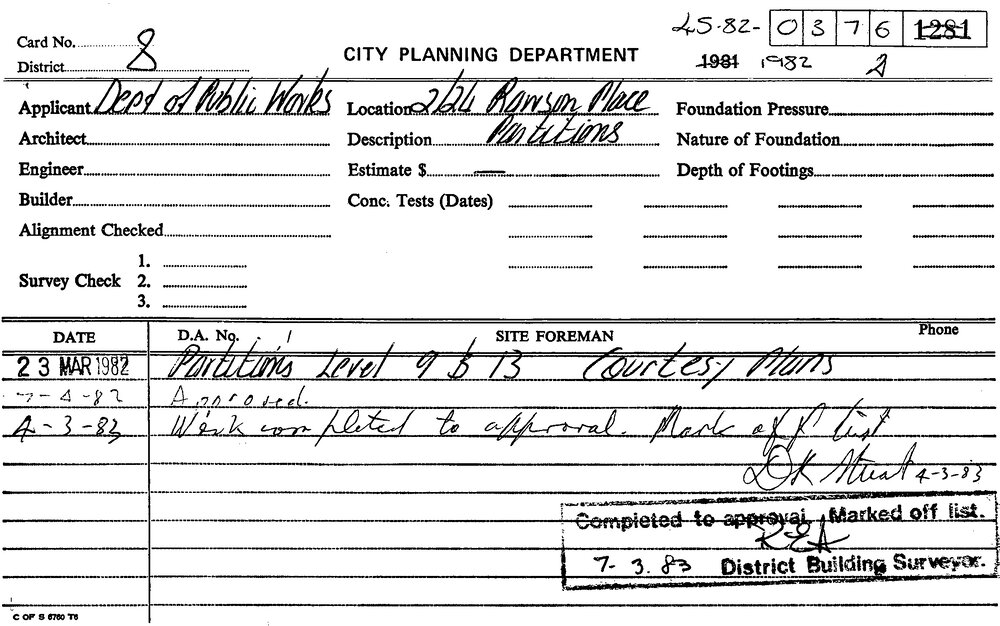 45-82- 0 3 7 6 1281
Card No. 8
District
CITY PLANNING DEPARTMENT
1981 1982 2
Applicant Dept of Public Works Location 2/24 Rawson Place Foundation Pressure
Architect Description Partitions Nature of Foundation
Engineer Estimate $ — Depth of Footings
Builder Conc. Tests (Dates)
Alignment Checked
Survey Check 1.
2.
3.
DATE D.A. No. SITE FOREMAN Phone
23 MAR 1982 Partitions Level 9 & 13 Courtesy Plans
7-4-82 Approved.
4-3-83 Work completed to approval. Mark off list
4-3-83
Completed to approval. Marked off list.
7. 3. 83 District Building Surveyor.
C OF S 6760 T6